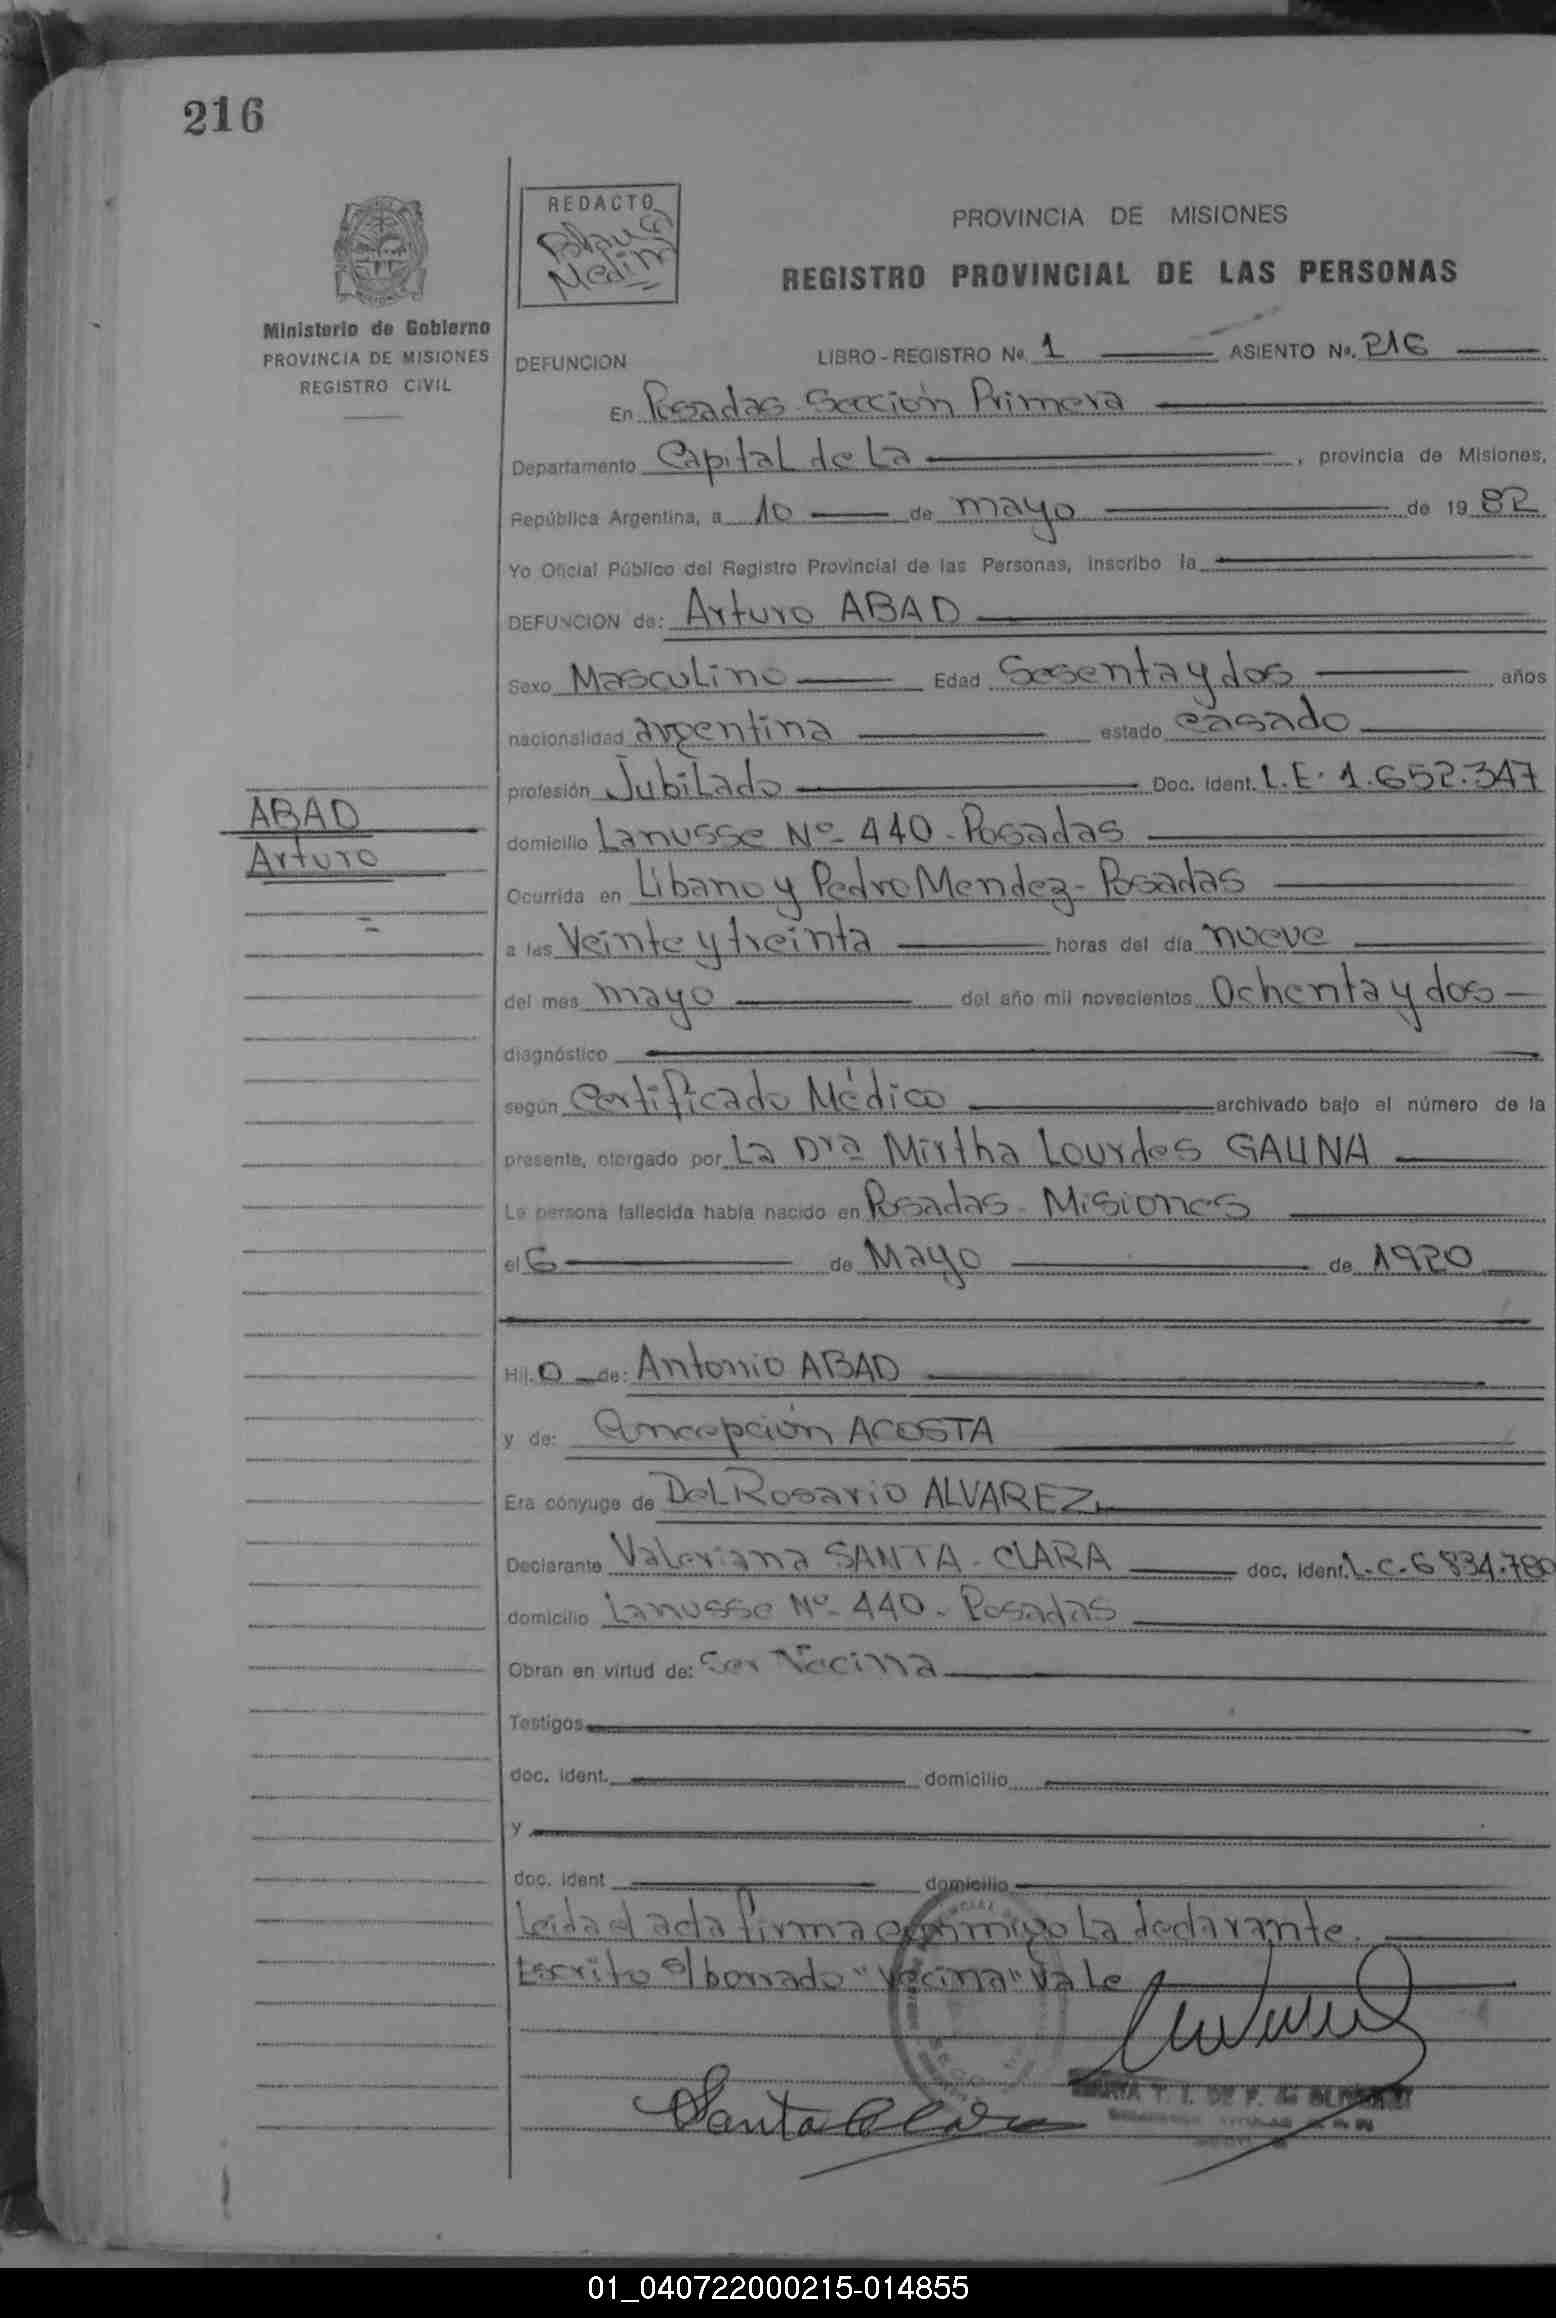 216
REDACTO
Medina
PROVINCIA DE MISIONES
REGISTRO PROVINCIAL DE LAS PERSONAS
Ministerio de Gobierno
PROVINCIA DE MISIONES
REGISTRO CIVIL
DEFUNCION LIBRO-REGISTRO No. 1 ASIENTO No. 216
En Posadas Sección Primera
Departamento Capital de La , provincia de Misiones,
República Argentina, a 10 de mayo de 1982
Yo Oficial Público del Registro Provincial de las Personas, inscribo la
DEFUNCION de: Arturo ABAD
Sexo Masculino Edad Sesenta y dos años
nacionalidad argentina estado casado
profesión Jubilado Doc. Ident. L.E. 1.652.347
ABAD
Arturo
domicilio Lanusse Nº 440 - Posadas
Ocurrida en Libano y Pedro Mendez - Posadas
a las Veinte y treinta horas del día nueve
del mes mayo del año mil novecientos Ochenta y dos
diagnóstico
según Certificado Médico archivado bajo el número de la
presente, otorgado por La Dra Mirtha Lourdes GAUNA
La persona fallecida había nacido en Posadas - Misiones
el 6 de Mayo de 1920
Hij. o de: Antonio ABAD
y de: Concepción ACOSTA
Era cónyuge de Del Rosario ALVAREZ
Declarante Valeriana SANTA - CLARA doc. ident. L.C. 6 834.780
domicilio Lanusse Nº 440 - Posadas
Obran en virtud de: Ser Vecina
Testigos
doc. ident. domicilio
y
doc. ident domicilio
Leida el acta firma conmigo La declarante.
Escrito s/borrado "Vecina" Vale
Santa Clara
01_040722000215-014855